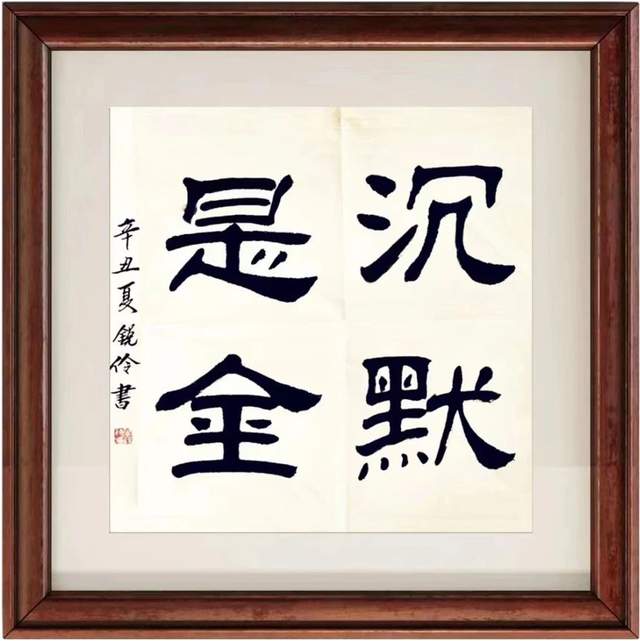 沉默
是金
辛丑夏锐伶书